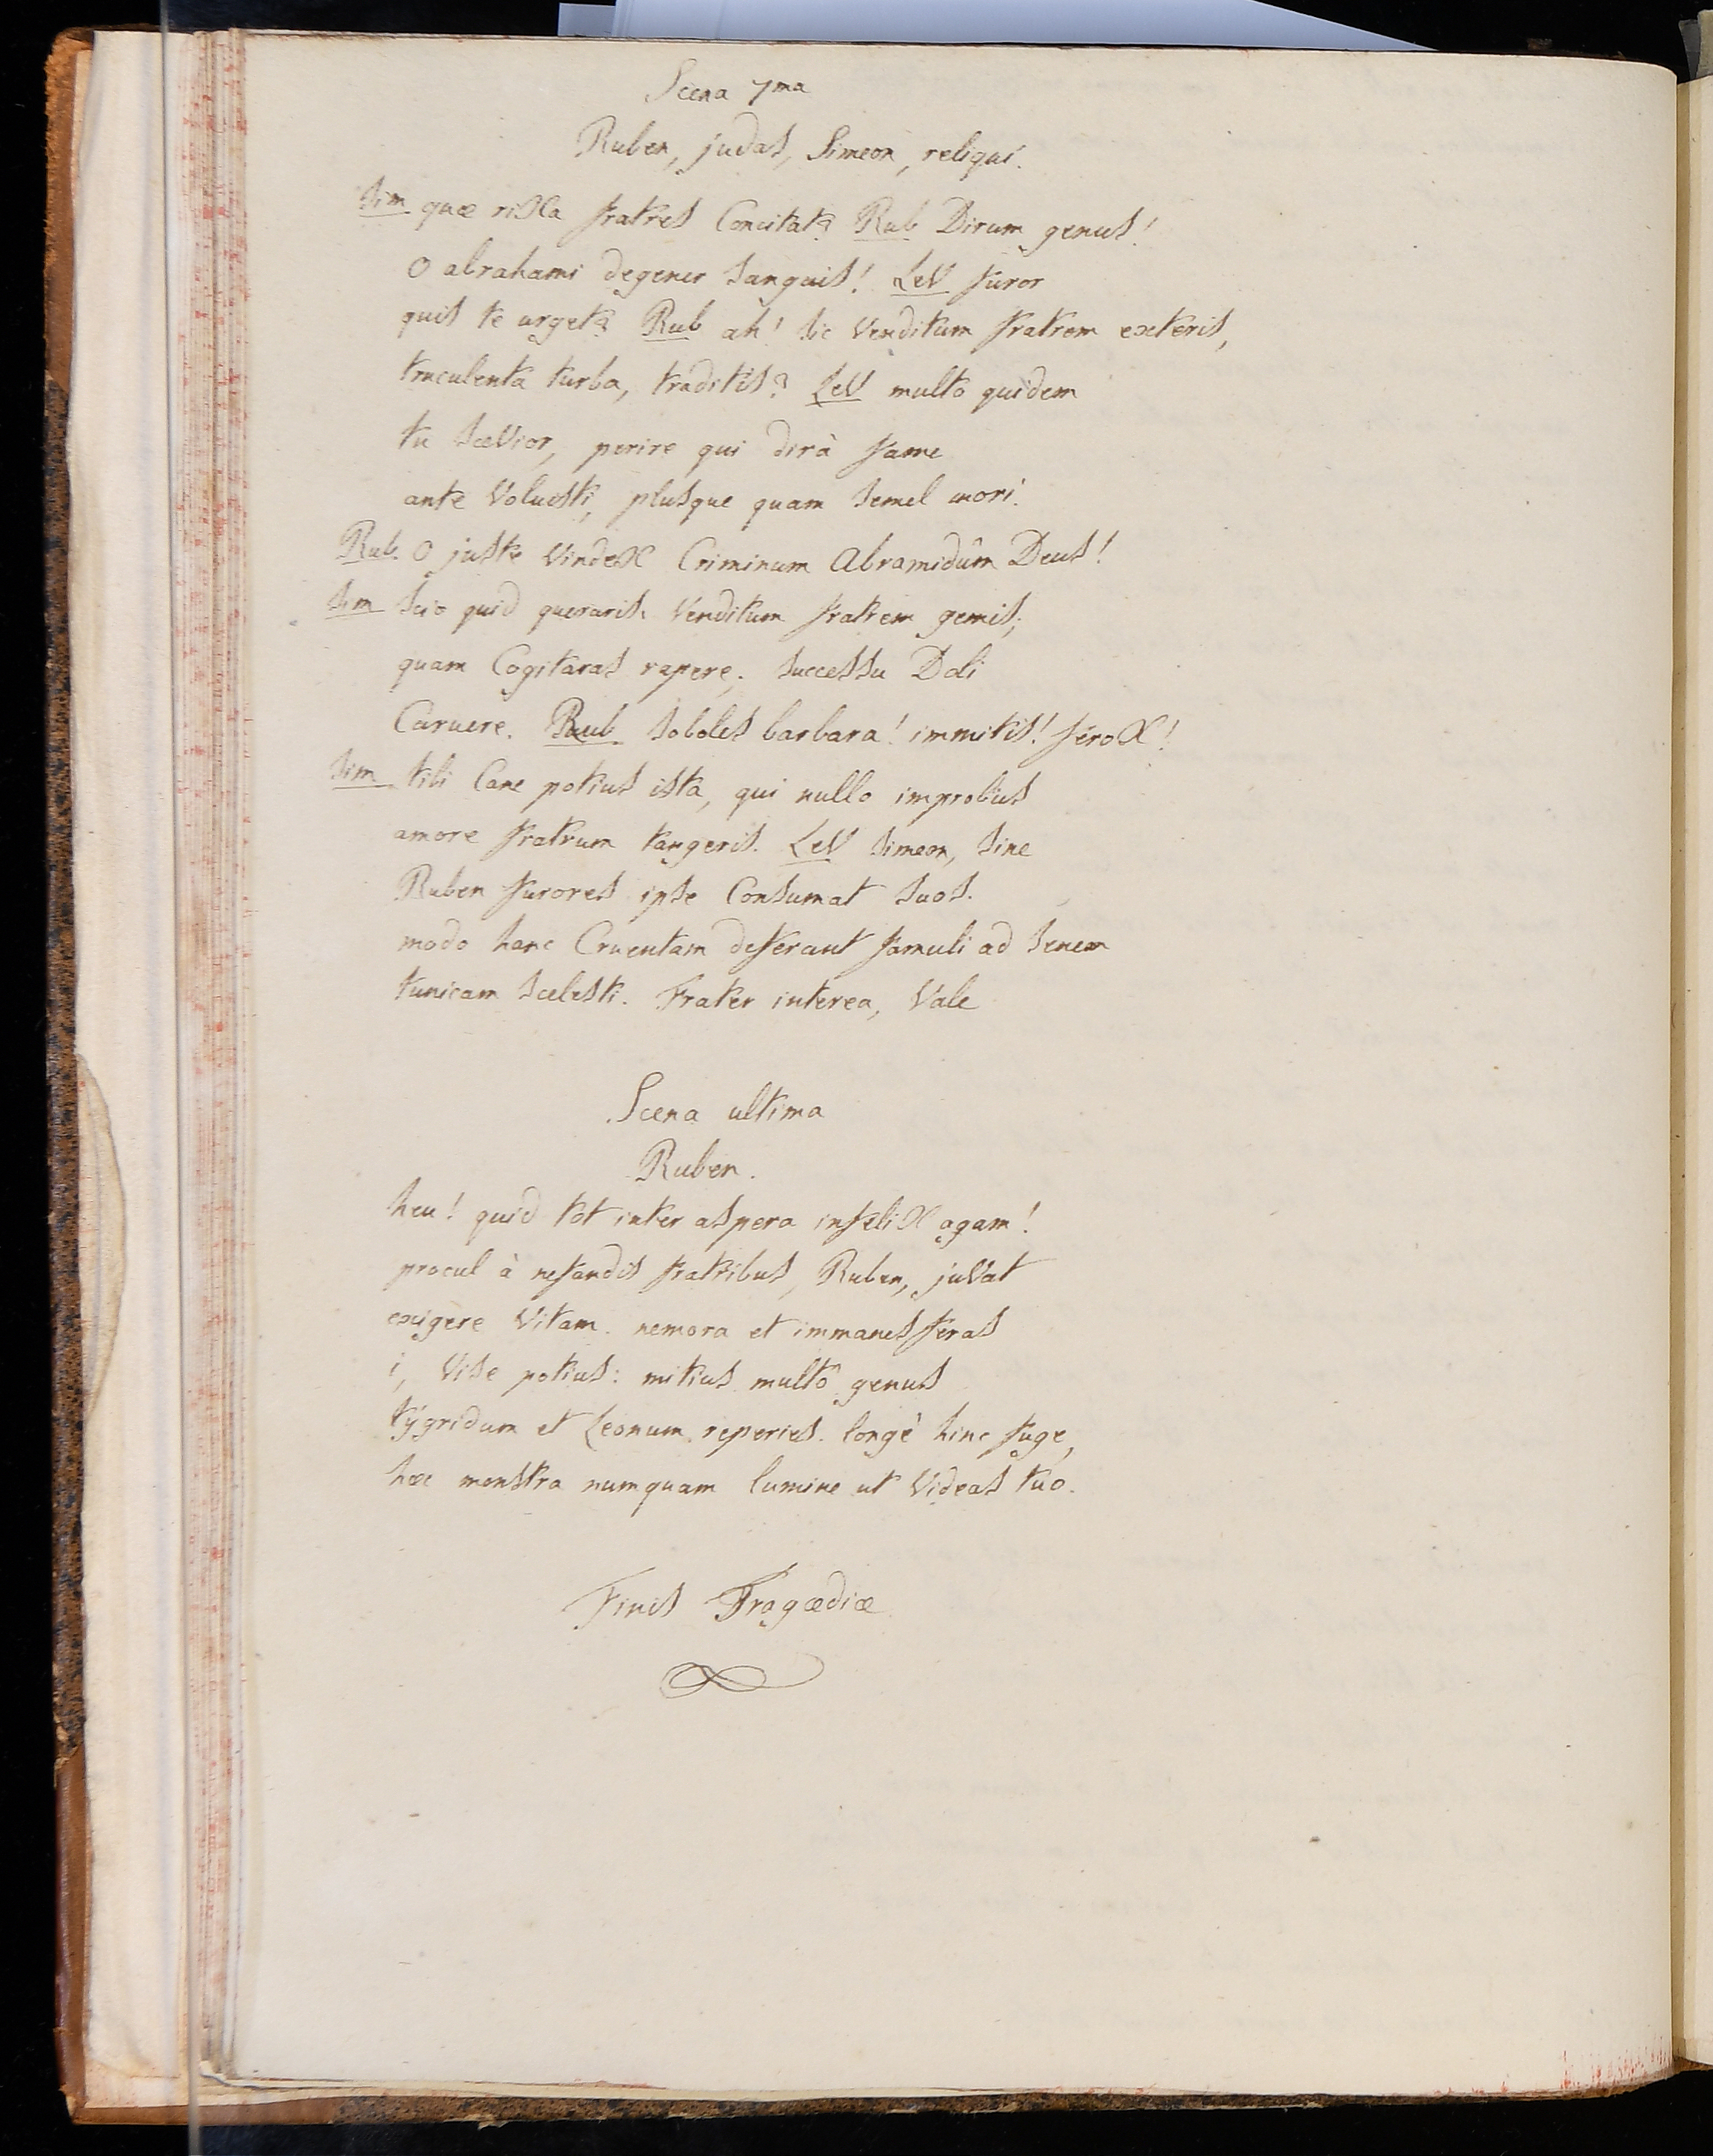 Scena 7ma
Ruben, judas, Simeon, reliqui.
Sim quæ rixa fratres Concitat? Rub Dirum genus!
O abrahami degener sanguis! Lev furor
quis te urget? Rub ah! sic Venditum fratrem exteris,
truculenta turba, traditis? Lev multo quidem
tu sæVior, perire qui dirà fame
ante Voluisti, plusque quam semel mori.
Rub. O juste Vindex Criminum Abramidûm Deus!
Sim Scio quid queraris. Venditum fratrem gemis;
quam Cogitaras rapere; successu Doli
Caruere. Rub soboles barbara! immitis! ferox!
Sim tibi Cane potius ista, qui nullo improbus
amore fratrum tangeris. Lev Simeon, sine
Ruben furores ipse Consumat suos.
modo hanc Cruentam deferant famuli ad senem
tunicam scelesti. Frater interea, Vale
Scena ultima
Ruben.
heu! quid tot inter aspera infelix agam!
procul à nefandis fratribus, Ruben, juVat
exigere Vitam. nemora et immanes feras
i, Vise potius: mitius multô genus
tÿgridum et Leonum reperies. longè hinc fuge,
hæc monstra numquam lumine ut Videas tuo.
Finis Tragœdiæ